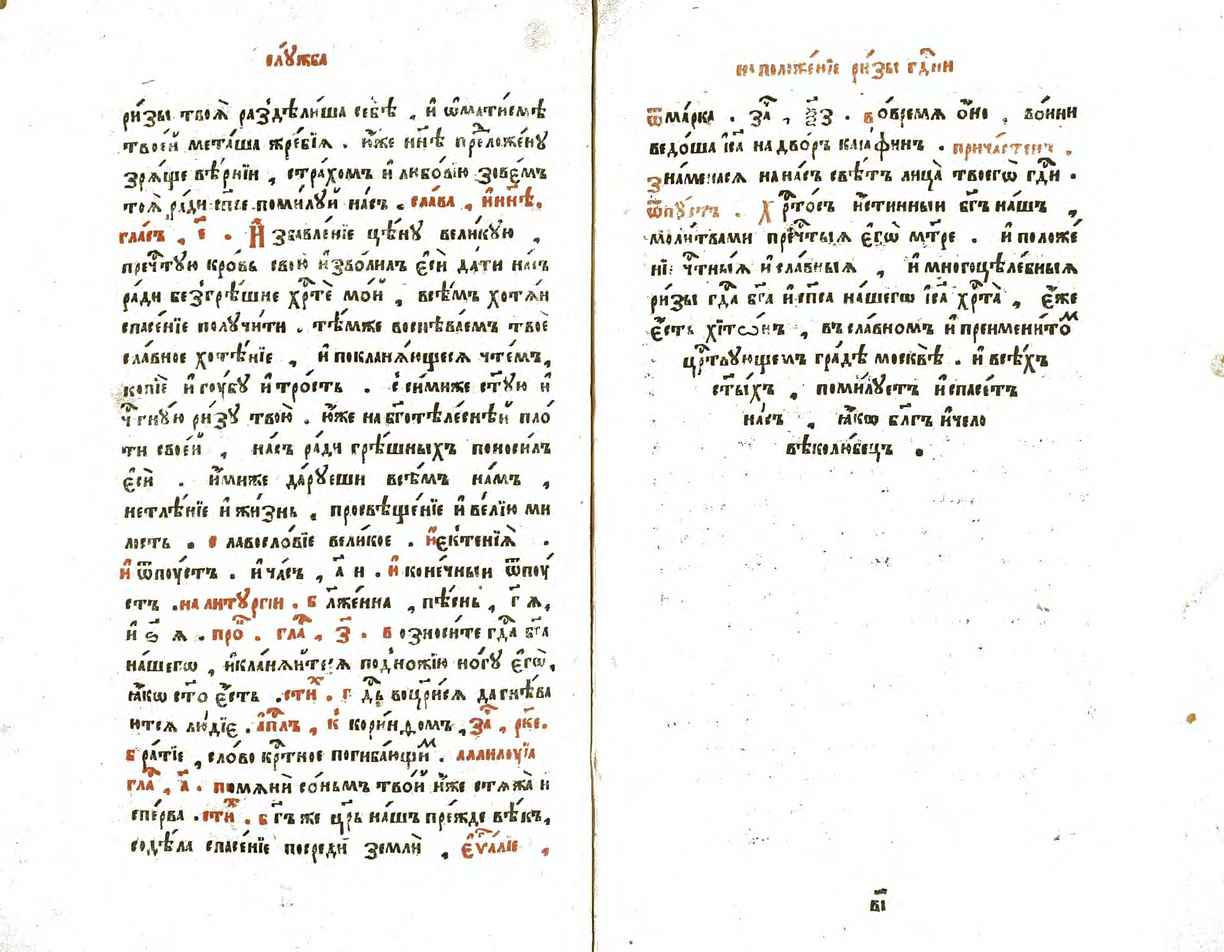 слꙋ́жба
ри́зы твоѧ̀ раздѣли́ша себѣ̀ , и҆ ѡ҆мати́смѣ
твое́й мета́ша жре́бїѧ . и҆́же нн҃ѣ пре́ложе́нꙋ
зрѧ́ще вѣ́рнїи , стра́хомъ и҆ любо́вїю зове́мъ
тоѧ̀ ра́ди сп҃се поми́лꙋй на́съ . сла́ва , и҆ нн҃ѣ,
гла́съ , є҃ . И҆ збавле́нїе цѣ́нꙋ вели́кꙋю ,
пречⷭ҇тꙋю кро́вь свою̀ и҆зво́лилъ є҆сѝ да́ти на́съ
ра́ди безгрѣ́шне хрⷭ҇тѐ мо́й , всѣ́мъ хотѧ́й
спасе́нїе полꙋчи́ти . тѣ́мже воспѣва́емъ твоѐ
сла́вное хотѣ́нїе , и҆ покланѧ́ющесѧ чте́мъ,
копїѐ и҆ гꙋ́бꙋ и҆ тро́сть . с си́миже ст҃ꙋю и҆
чⷭ҇тнꙋ́ю ри́зꙋ твою̀ . ю҆́же на бг҃отѣле́снѣй пло́
ти свое́й , на́съ ра́ди грѣ́шныхъ поноси́лъ
є҆сѝ . и҆́миже да́рꙋеши всѣ́мъ на́мъ ,
нетлѣ́нїе и҆ жи́знь , просвѣще́нїе и҆ ве́лїю ми
лость . славосло́вїе великое . и҆ є҆ктенїѧ̀ .
И҆ ѿпꙋ́стъ . и҆ ча́съ , а҃ и . и҆ коне́чныи ѿпꙋ́
стъ . на литꙋргі́и . бл҃же́нна , пѣ́снь , г҃ ѧ,
и҆ ѕ҃ ѧ . про́ . гла́ , з҃ . возноси́те гдⷭ҇а бг҃а
на́шегѡ , и҆ кланѧ́йтесѧ подно́жїю но́гꙋ є҆гѡ̀,
ꙗ҆́кѡ ст҃о є҆́сть . сти́ⷯ . гдⷭ҇ь воцр҃и́сѧ да гнѣ́ва
ютсѧ лю́дїе . а҆пⷭ҇лъ , к кори́нѳомъ , за҄ , рк҃е.
бра́тїе , сло́во крⷭ҇тное погиба́ющиⷨ . аллилꙋ́їа
гла́ , а҃ . помѧнѝ со́ньмъ тво́й и҆́же стѧжа̀ и
спе́рва . сти́ⷯ . бг҃ъ же цр҃ь на́шъ пре́жде вѣ́къ,
содѣ́ла спасе́нїе посредѝ землѝ , є҆ѵⷢ҇а́лїе ,
на положе́нїе ри́зы гдⷭ҇ни
ѿ ма́рка . за҄ , ѯ҃з . во вре́мѧ о҆́но , во́ини
ведо́ша і҆с҃а на дво́ръ каїа́финъ . прича́стенъ .
знаменасѧ на на́съ свѣ́тъ лица̀ твоегѡ̀ гдⷭ҇и .
ѿпꙋ́стъ . Хрⷭ҇то́съ и҆́стинныи бг҃ъ на́шъ ,
моли́твами пречⷭ҇тыѧ є҆гѡ̀ мт҃ре . и҆ положе́
нїѐ чⷭ҇тны́ѧ и҆ сла́вныѧ , и҆ многоцѣле́бныѧ
ри́зы гдⷭ҇а бг҃а и҆ сп҃са на́шегѡ і҆с҃а хрⷭ҇та̀ , є҆́же
є҆́сть хїтѡ́нъ , въ сла́вномъ и҆ преимени́тоⷨ
црⷭ҇твꙋющемъ гра́дѣ москвѣ̀ . и҆ всѣ́хъ
ст҃ы́хъ , поми́лꙋетъ и҆ спасе́тъ
на́съ , ꙗ҆́кѡ бл҃гъ и҆ чело
вѣколю́бецъ .
в҃і